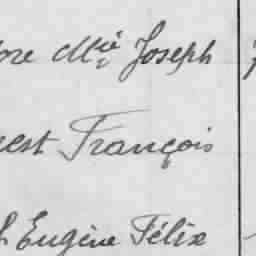 ore Mie Joseph
nest François
h Eugène Félix